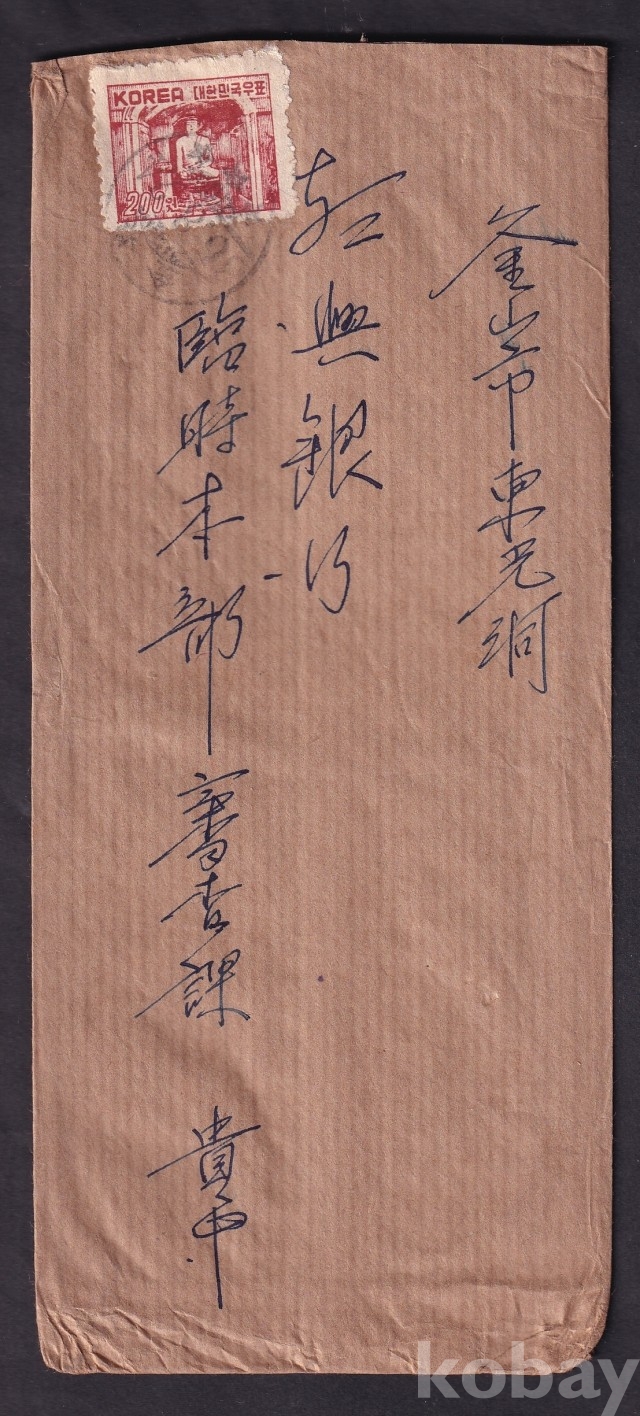 KOREA 대한민국우표
200원
釜山市東光洞
朝興銀行
臨時本部審査課 貴中
kobay